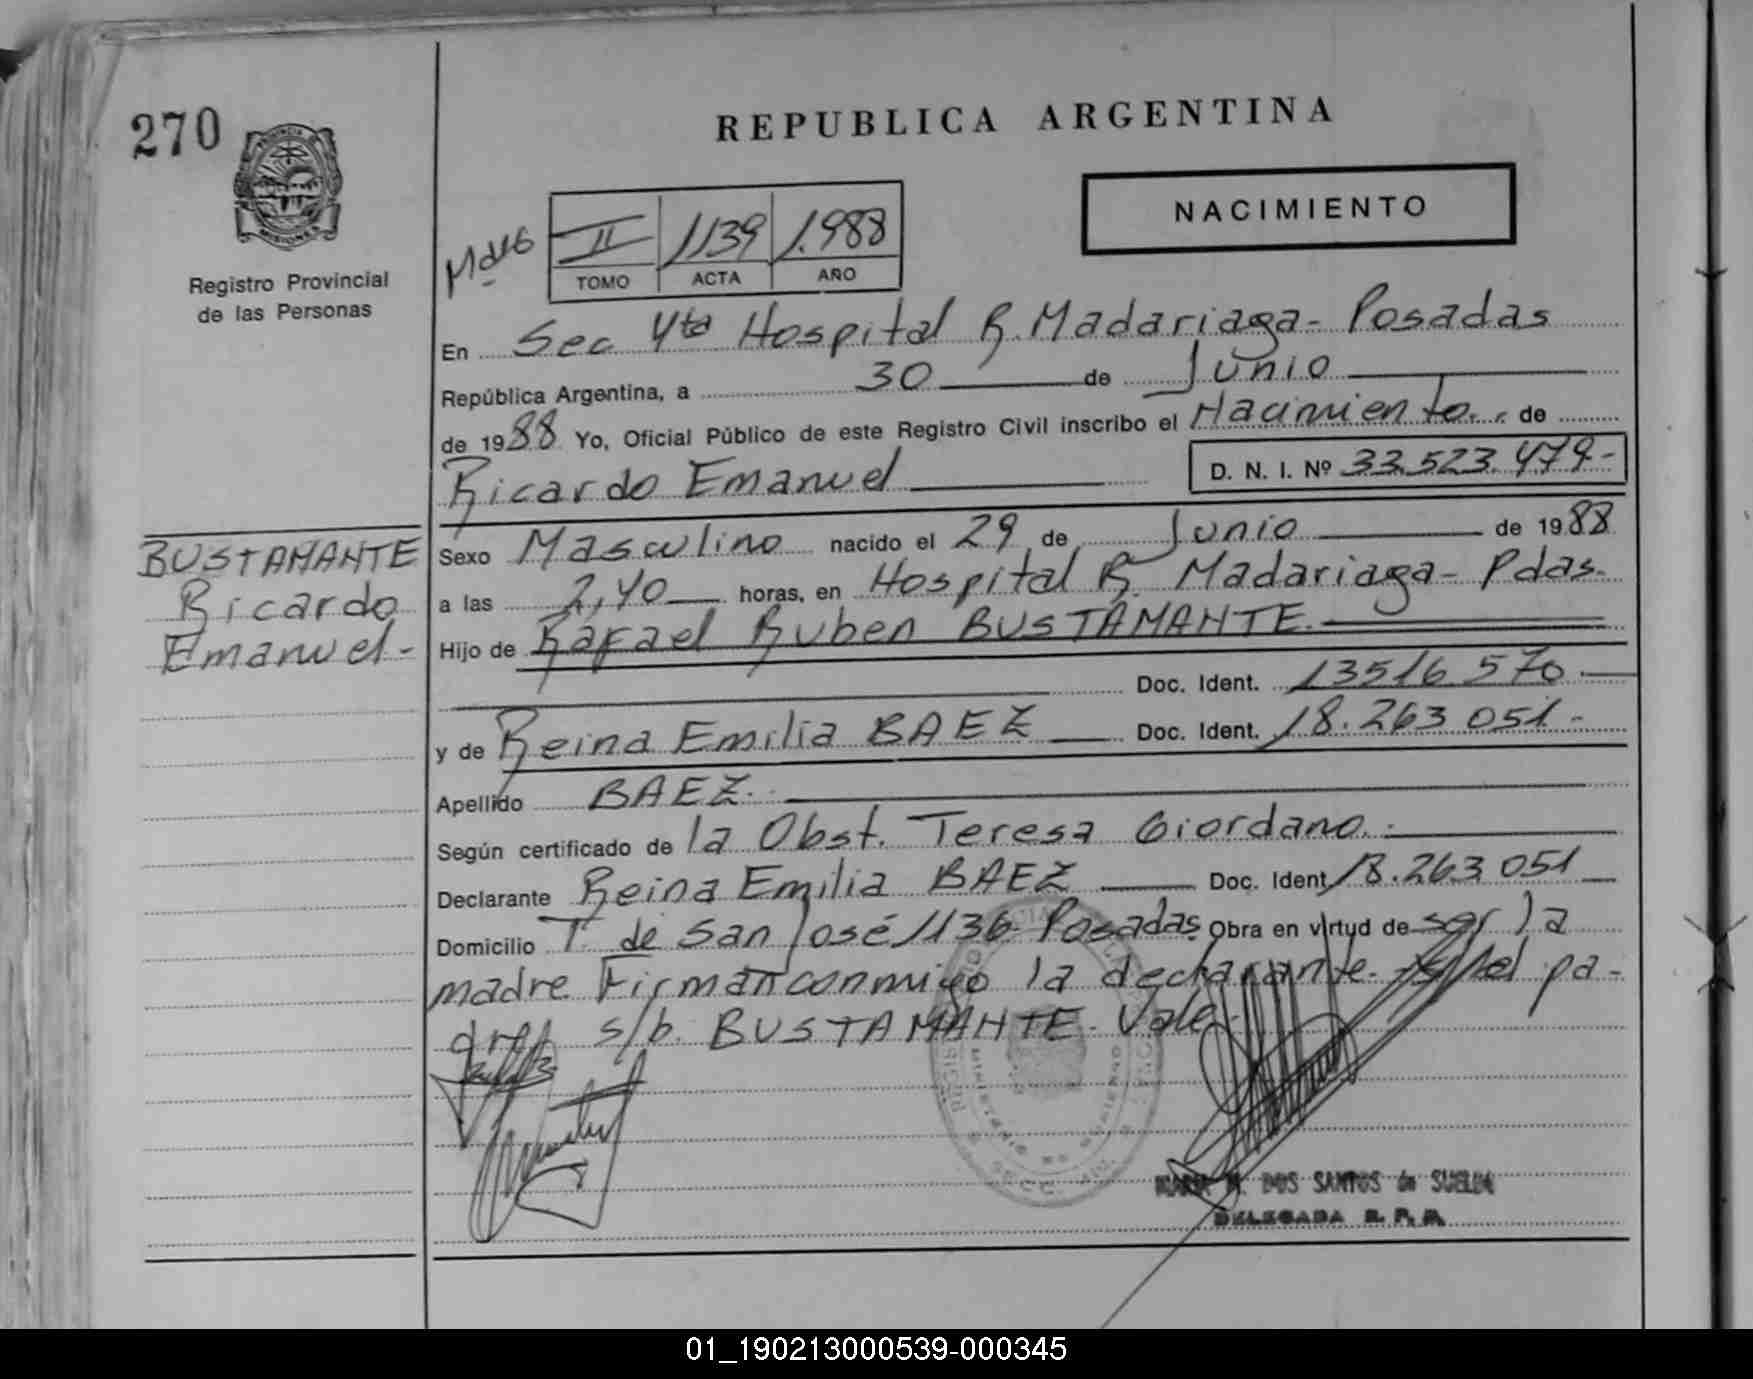 270
PROVINCIA
MISIONES
Registro Provincial
de las Personas
REPUBLICA ARGENTINA
NACIMIENTO
II 1139 1.988
TOMO ACTA AÑO
En Sec 4ta Hospital R. Madariaga - Posadas
República Argentina, a 30 de Junio
de 1988 Yo, Oficial Público de este Registro Civil inscribo el Nacimiento. de
Ricardo Emanuel D. N. I. Nº 33.523.479.-
BUSTAMANTE
Ricardo
Emanuel -
Sexo Masculino nacido el 29 de Junio de 1988
a las 2,40 horas, en Hospital R. Madariaga - Pdas.
Hijo de Rafael Ruben BUSTAMANTE.
Doc. Ident. 13516 570
y de Reina Emilia BAEZ Doc. Ident. 18.263 051.-
Apellido BAEZ.
Según certificado de la Obst. Teresa Giordano.
Declarante Reina Emilia BAEZ Doc. Ident 18.263 051
Domicilio T. de San José 1136 Posadas Obra en virtud de ser la
madre Firman conmigo la declarante y el pa-
dre s/b. BUSTAMANTE. Vale.
MARIA M. DOS SANTOS de SUELDO
DELEGADA R. P. P.
01_190213000539-000345